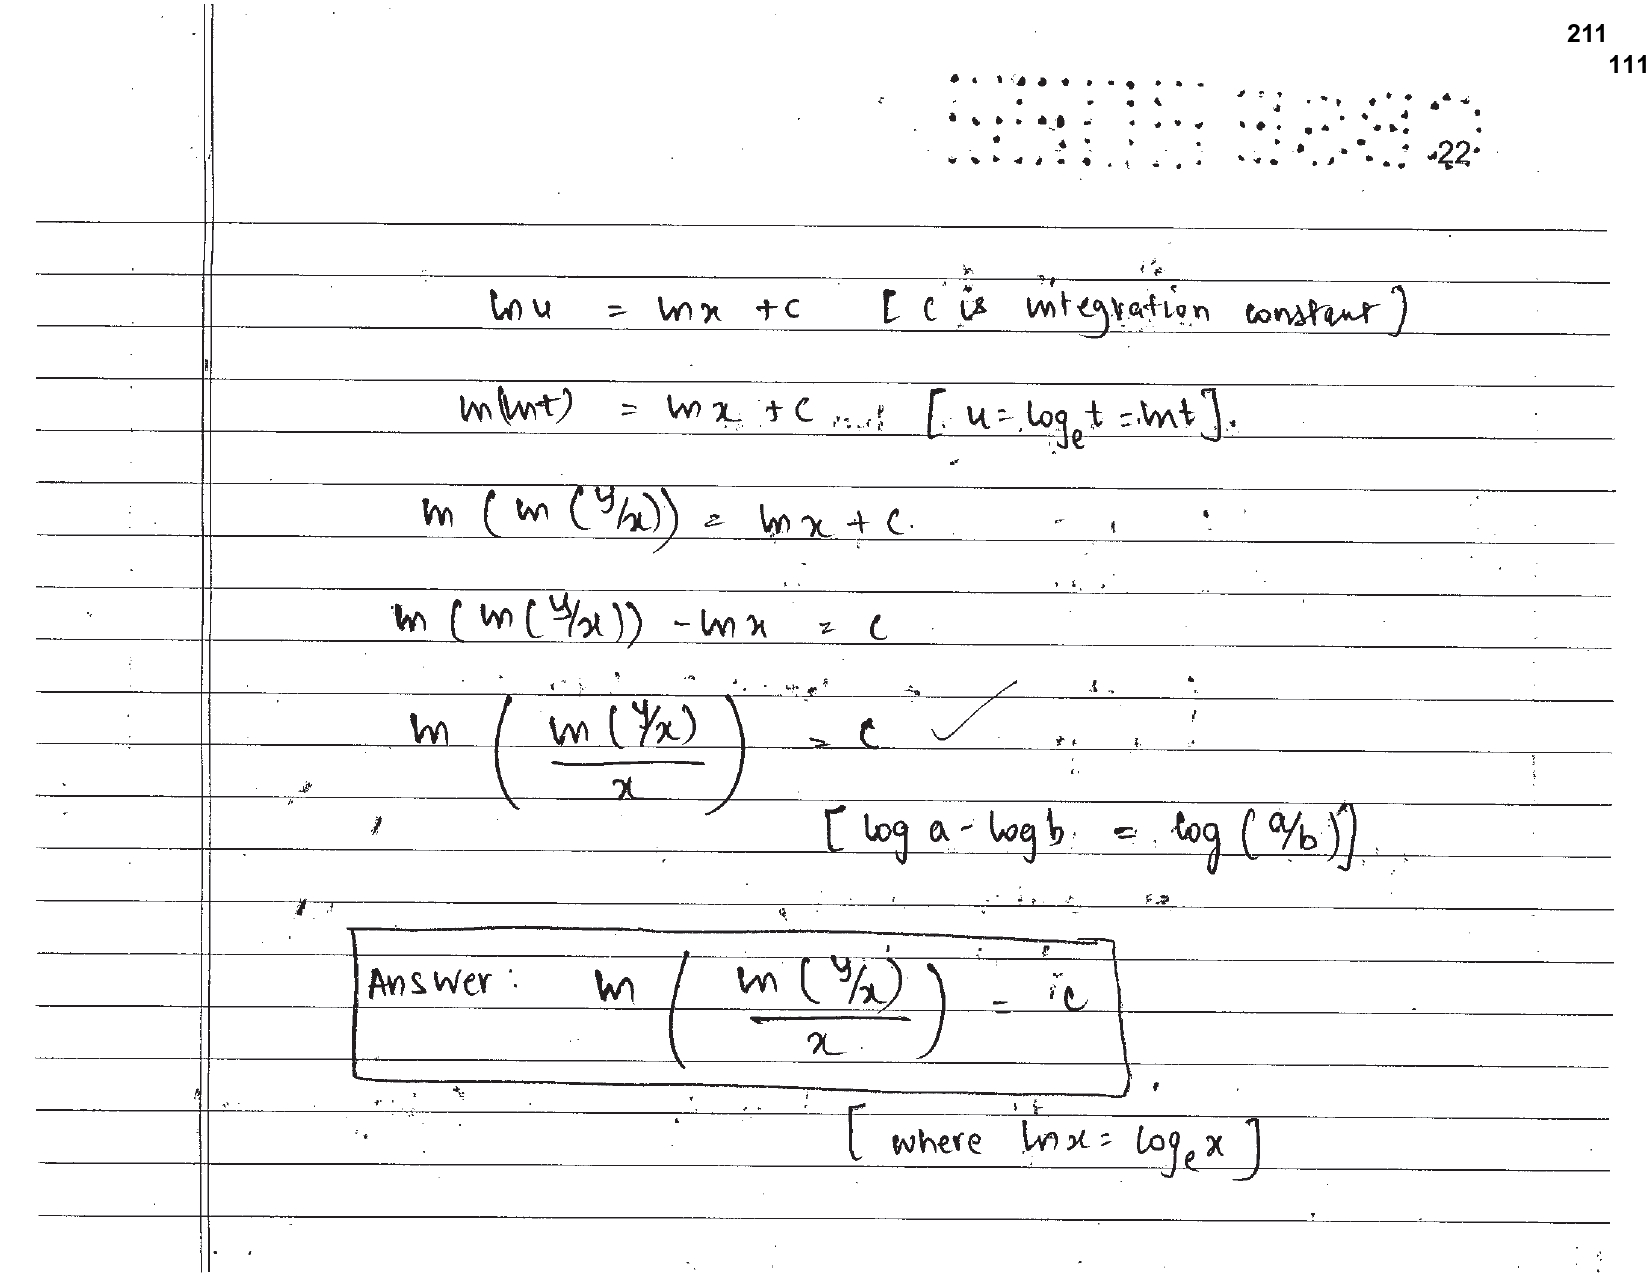 211
111
22
ln u = ln x + c [ c is integration constant ]
ln(ln t) = ln x + c [ u = log_e t = ln t ].
ln ( ln ( y/x ) ) = ln x + c.
ln ( ln ( y/x ) ) - ln x = c
ln ( ln ( y/x ) / x ) = c ✓
[ log a - log b = log ( a/b ) ]
Answer: ln ( ln ( y/x ) / x ) = c
[ where ln x = log_e x ]